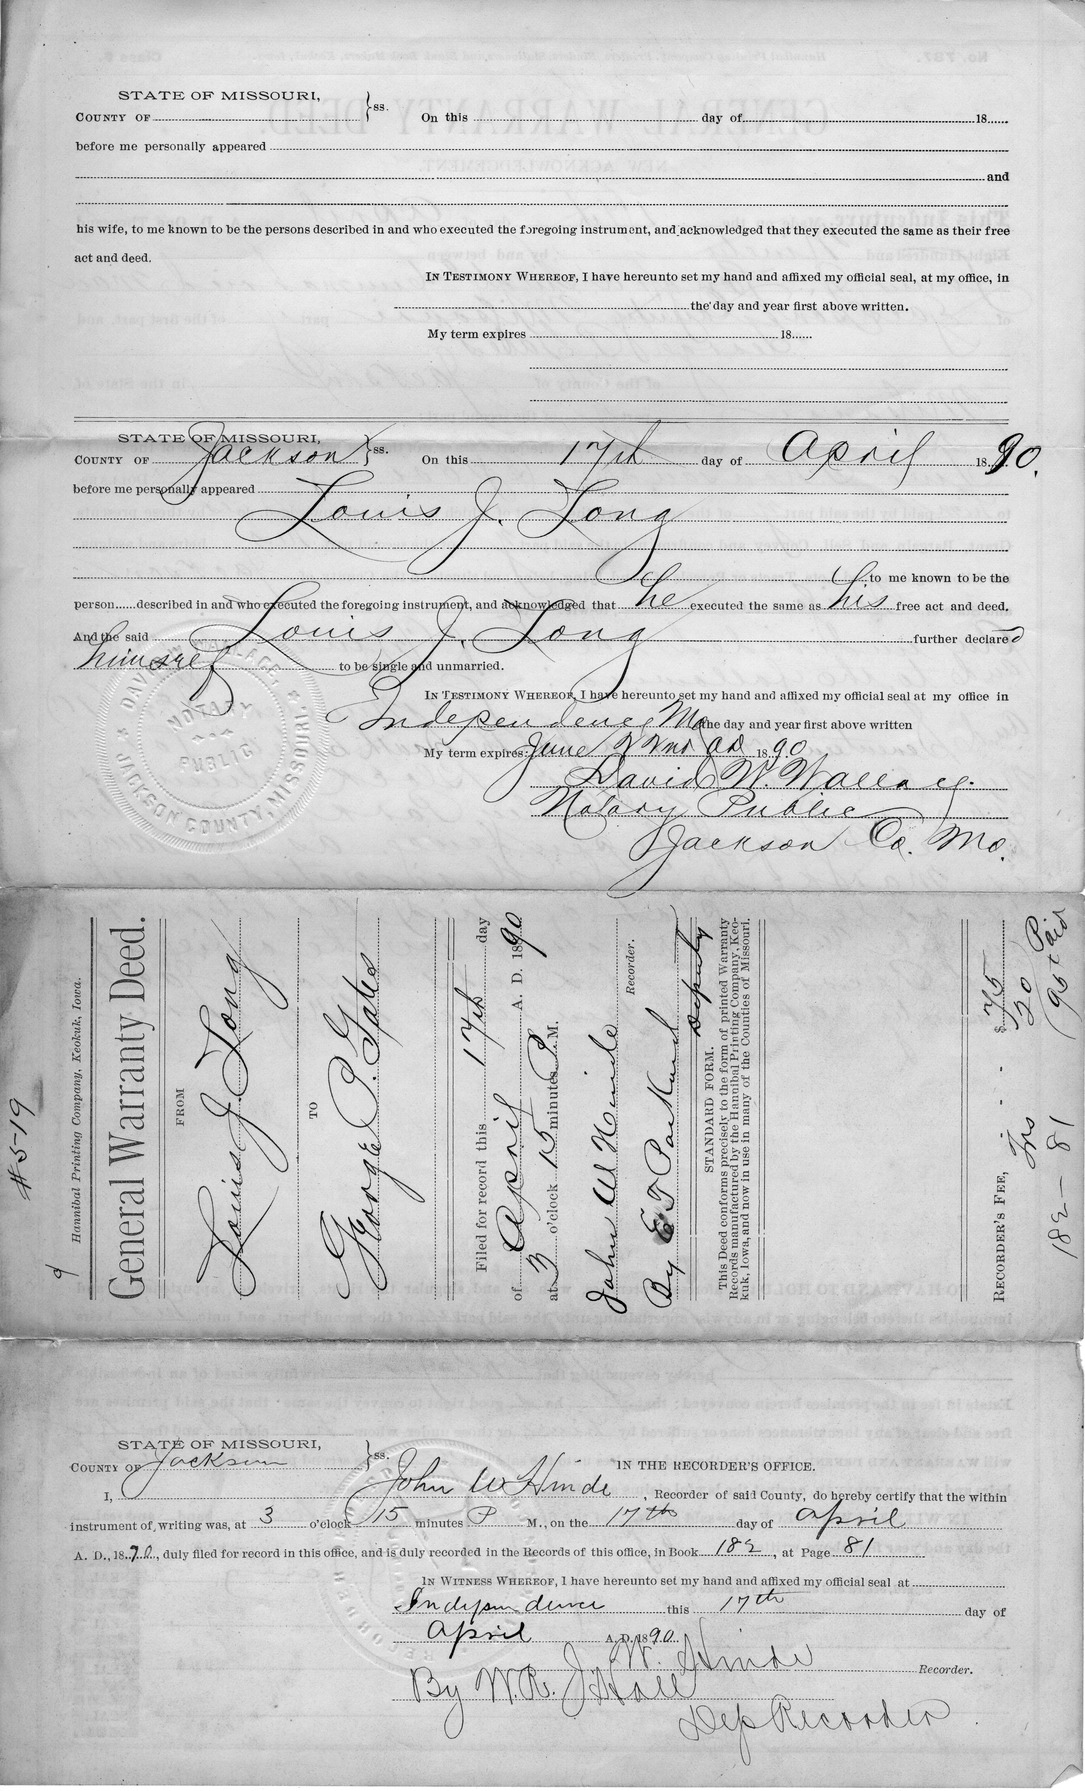 STATE OF MISSOURI,
COUNTY OF } ss. On this day of 18
before me personally appeared
and
his wife, to me known to be the persons described in and who executed the foregoing instrument, and acknowledged that they executed the same as their free
act and deed.
IN TESTIMONY WHEREOF, I have hereunto set my hand and affixed my official seal, at my office, in
the day and year first above written.
My term expires 18
STATE OF MISSOURI,
COUNTY OF Jackson } ss. On this 17th day of April 1890.
before me personally appeared
Louis J. Long
to me known to be the
person described in and who executed the foregoing instrument, and acknowledged that he executed the same as his free act and deed.
And the said Louis J. Long further declared
himself to be single and unmarried.
IN TESTIMONY WHEREOF, I have hereunto set my hand and affixed my official seal at my office in
Independence Mo the day and year first above written
My term expires: June 22nd AD 1890
David W. Wallace.
Notary Public
Jackson Co. Mo.
DAVID W. WALLACE, JACKSON COUNTY, MISSOURI.
NOTARY
PUBLIC
#5-19
9
Hannibal Printing Company, Keokuk, Iowa.
General Warranty Deed.
FROM
Louis J. Long
TO
George P. Gates
Filed for record this 17th day
of April A. D. 1890
at 3 o'clock 15 minutes P. M.
John W Hinde
Recorder.
By E T Deputy
STANDARD FORM.
This Deed conforms precisely to the form of printed Warranty
Records manufactured by the Hannibal Printing Company, Keo-
kuk, Iowa, and now in use in many of the Counties of Missouri.
RECORDER'S FEE, - - $ 75
20
95 Paid
182-81
STATE OF MISSOURI,
COUNTY OF Jackson } ss. IN THE RECORDER'S OFFICE.
I, John W Hinde, Recorder of said County, do hereby certify that the within
instrument of writing was, at 3 o'clock 15 minutes P M., on the 17th day of April
A. D., 1890, duly filed for record in this office, and is duly recorded in the Records of this office, in Book 182, at Page 81
IN WITNESS WHEREOF, I have hereunto set my hand and affixed my official seal at
Independence this 17th day of
April A. D. 1890.
J. W. Hinde Recorder.
By W.R. Hall
Dep Recorder